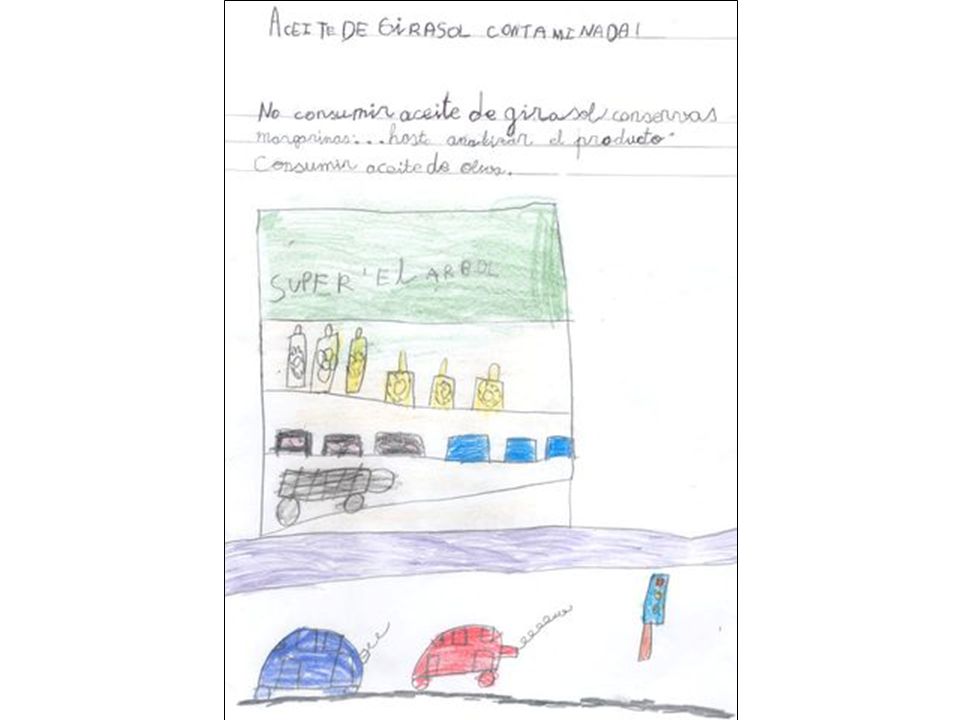 ACEITE DE GIRASOL CONTAMINADA!
No consumir aceite de girasol conservas
margarinas...hasta analizar el producto.
Consumir aceite de oliva.
SUPER'EL ARBOL